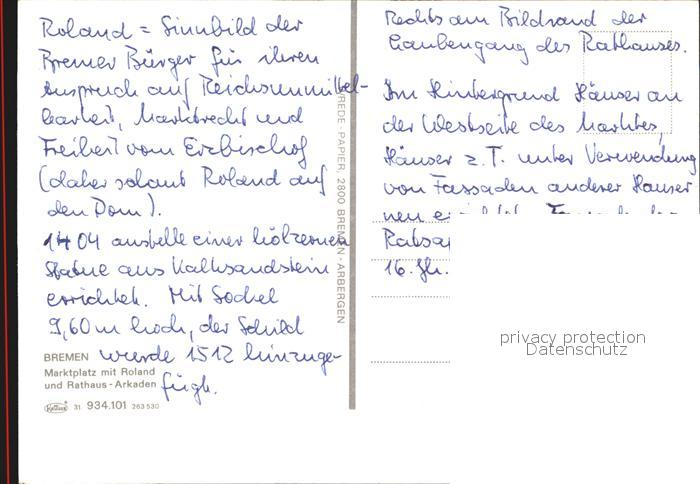 Roland = Sinnbild der
Bremer Bürger für ihren
Anspruch auf Reichsunmittel-
barkeit, Marktrecht und
Freiheit vom Erzbischof
(daher schaut Roland auf
den Dom).
1404 anstelle einer hölzernen
Statue aus Kalksandstein
errichtet. Mit Sockel
9,60 m hoch, der Schild
wurde 1512 hinzuge-
fügt.
BREMEN
Marktplatz mit Roland
und Rathaus - Arkaden
31 934.101 263 530
REDE · PAPIER, 2800 BREMEN - ARBERGEN
Rechts am Bildrand der
Laubengang des Rathauses.
Im Hintergrund Häuser an
der Westseite des Marktes,
Häuser z. T. unter Verwendung
von Fassaden anderer Häuser
neu
16. Jh.
privacy protection
Datenschutz